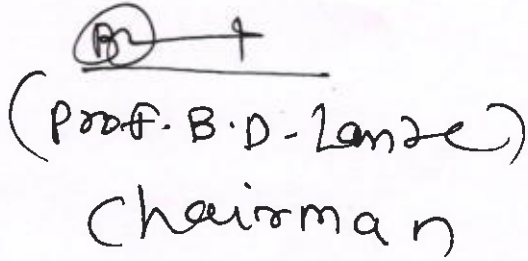 (Prof. B.D-Lanre)
Chairman